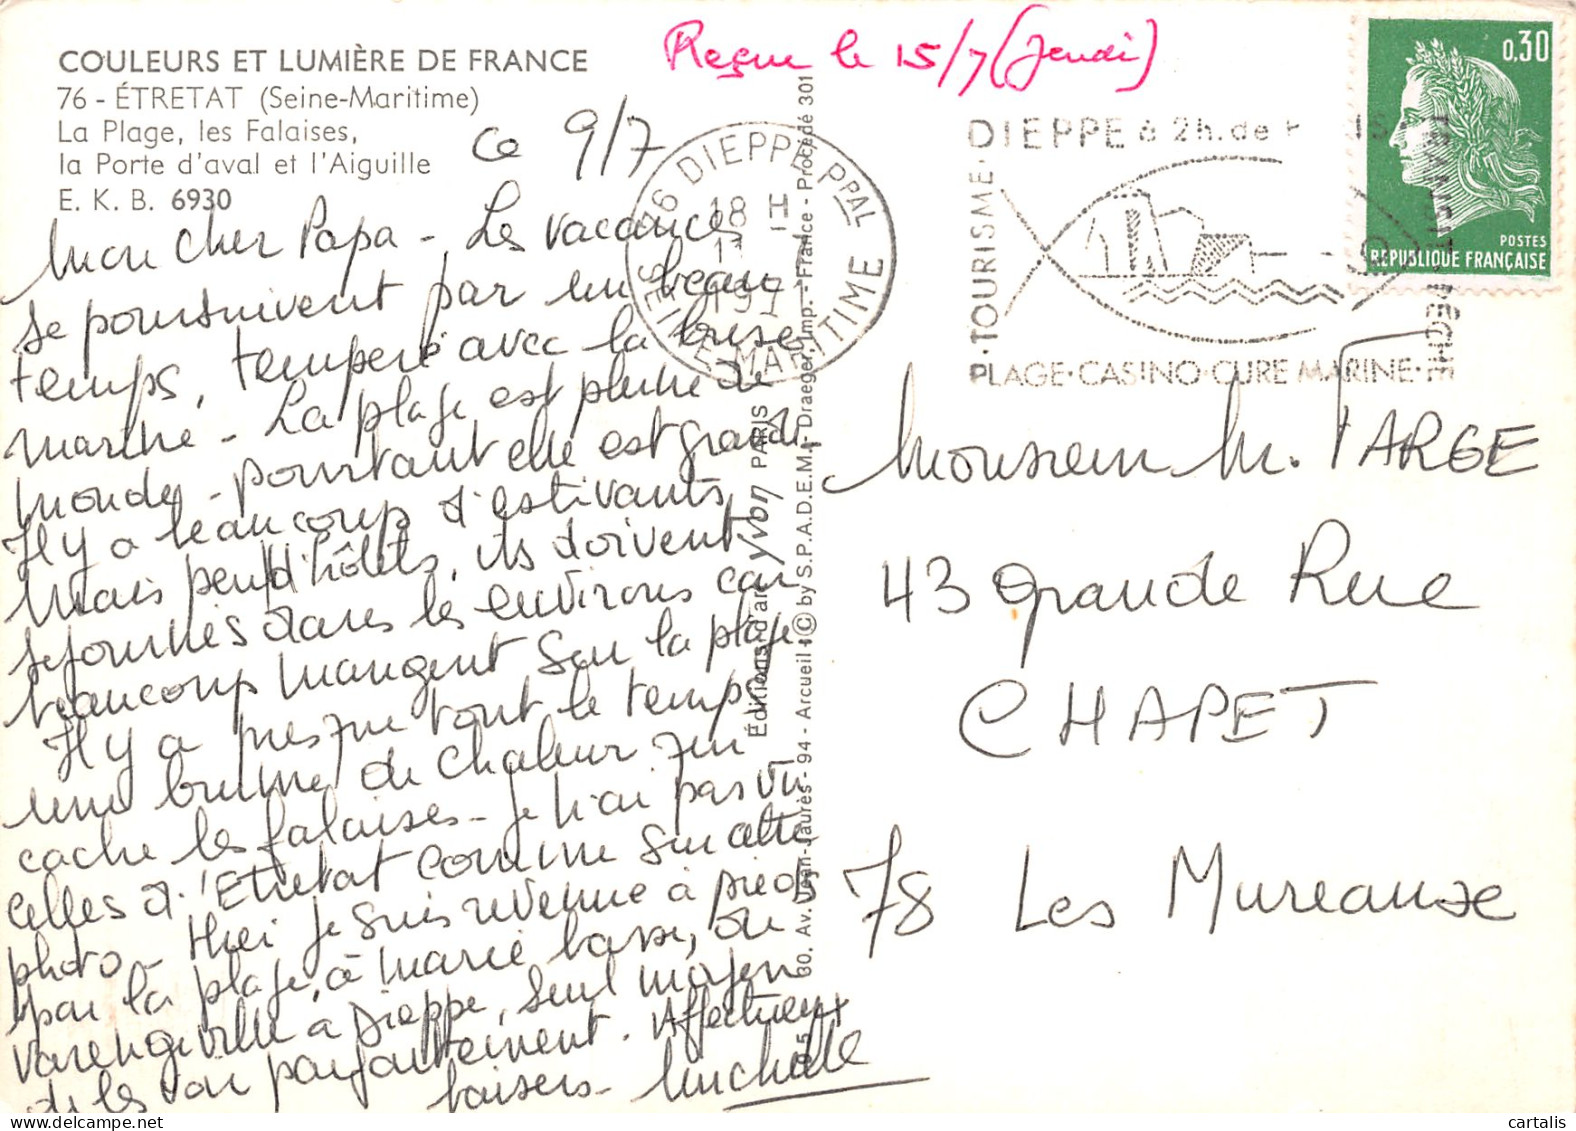 COULEURS ET LUMIÈRE DE FRANCE
76 - ÉTRETAT (Seine-Maritime)
La Plage, les Falaises,
la Porte d'aval et l'Aiguille
E. K. B. 6930
Reçue le 15/7 (Jeudi)
ce 9/7
Mon cher Papa - Les vacances
se poursuivent par un beau
temps, tempéré avec la brise
marine - La plage est pleine de
monde, - pourtant elle est grande
Il y a beaucoup d'estivants
mais peu d'hôtels, ils doivent
séjourner dans les environs car
beaucoup mangent sur la plage
Il y a presque tout le temps
une brume de chaleur qui
cache les falaises - je n'ai pas vu
celles d'Etretat comme sur cette
photo - Hier je suis revenue à pied
par la plage, à marée basse, de
Varengeville à Dieppe, seul moyen
de les voir parfaitement. Affectueux
baisers - Michelle
76 DIEPPE PPAL
18 H
11
197
SEINE-MARITIME
DIEPPE à 2h. de P IS
TOURISME
PLAGE·CASINO·CURE MARINE·
TRANSIT
0,30
POSTES
REPUBLIQUE FRANÇAISE
Éditions d'art yvon PARIS
30, Av. Jean-Jaurès - 94 - Arcueil - © by S.P.A.D.E.M. - Draeger, Imp. - France - Procédé 301
Monsieur M. TARGE
43 grande Rue
CHAPET
78 Les Mureause
cartalis
www.delcampe.net